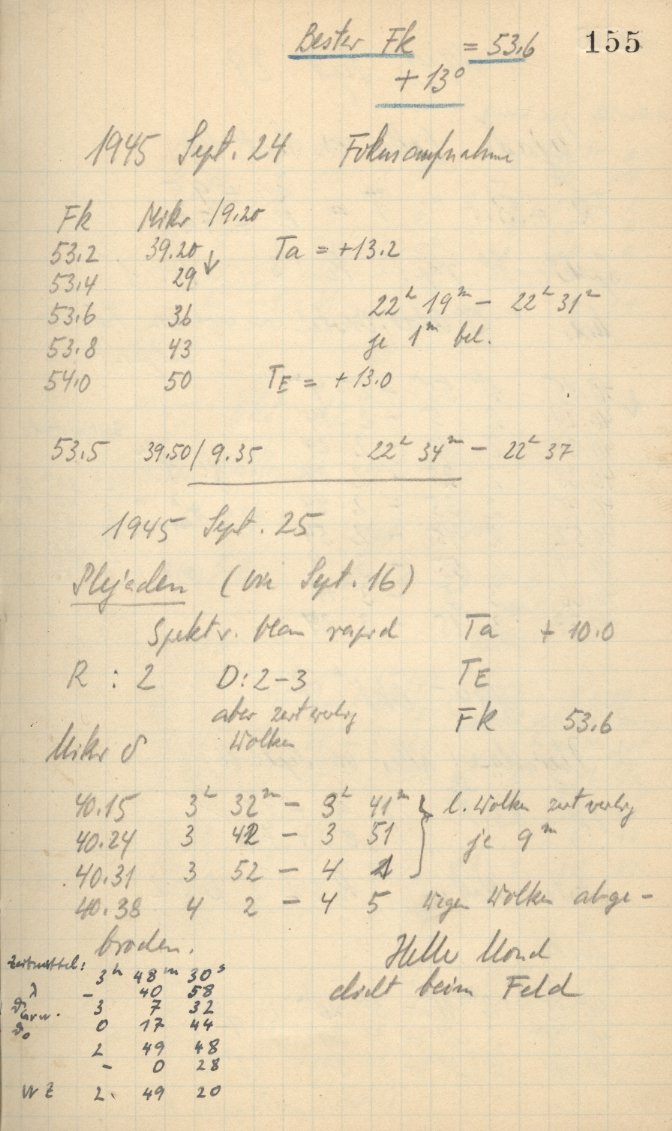 Bester Fk = 53.6 155
+ 13°
1945 Sept. 24 Fokusaufnahme
Fk Mikr / 9.20
53.2 39.20 ↓ Ta = +13.2
53.4 29
53.6 36 22ʰ 19ᵐ – 22ʰ 31ᵐ
53.8 43 je 1ᵐ bel.
54.0 50 TE = +13.0
53.5 39.50 / 9.35 22ʰ 34ᵐ – 22ʰ 37
1945 Sept. 25
Plejaden (wie Sept. 16)
Spektr. blau rapid Ta + 10.0
R : 2 D: 2–3 TE
aber zeitweilig Fk 53.6
Mikr δ Wolken
40.15 3ʰ 32ᵐ – 3ʰ 41ᵐ l. Wolken zeitweilig
40.24 3 42 – 3 51 je 9ᵐ
40.31 3 52 – 4 1
40.38 4 2 – 4 5 wegen Wolken abge-
brochen. Heller Mond
dicht beim Feld
Zeitmittel: 3ʰ 48ᵐ 30ˢ
λ – 40 58
3 7 32
0 17 44
2 49 48
– 0 28
WZ 2 49 20